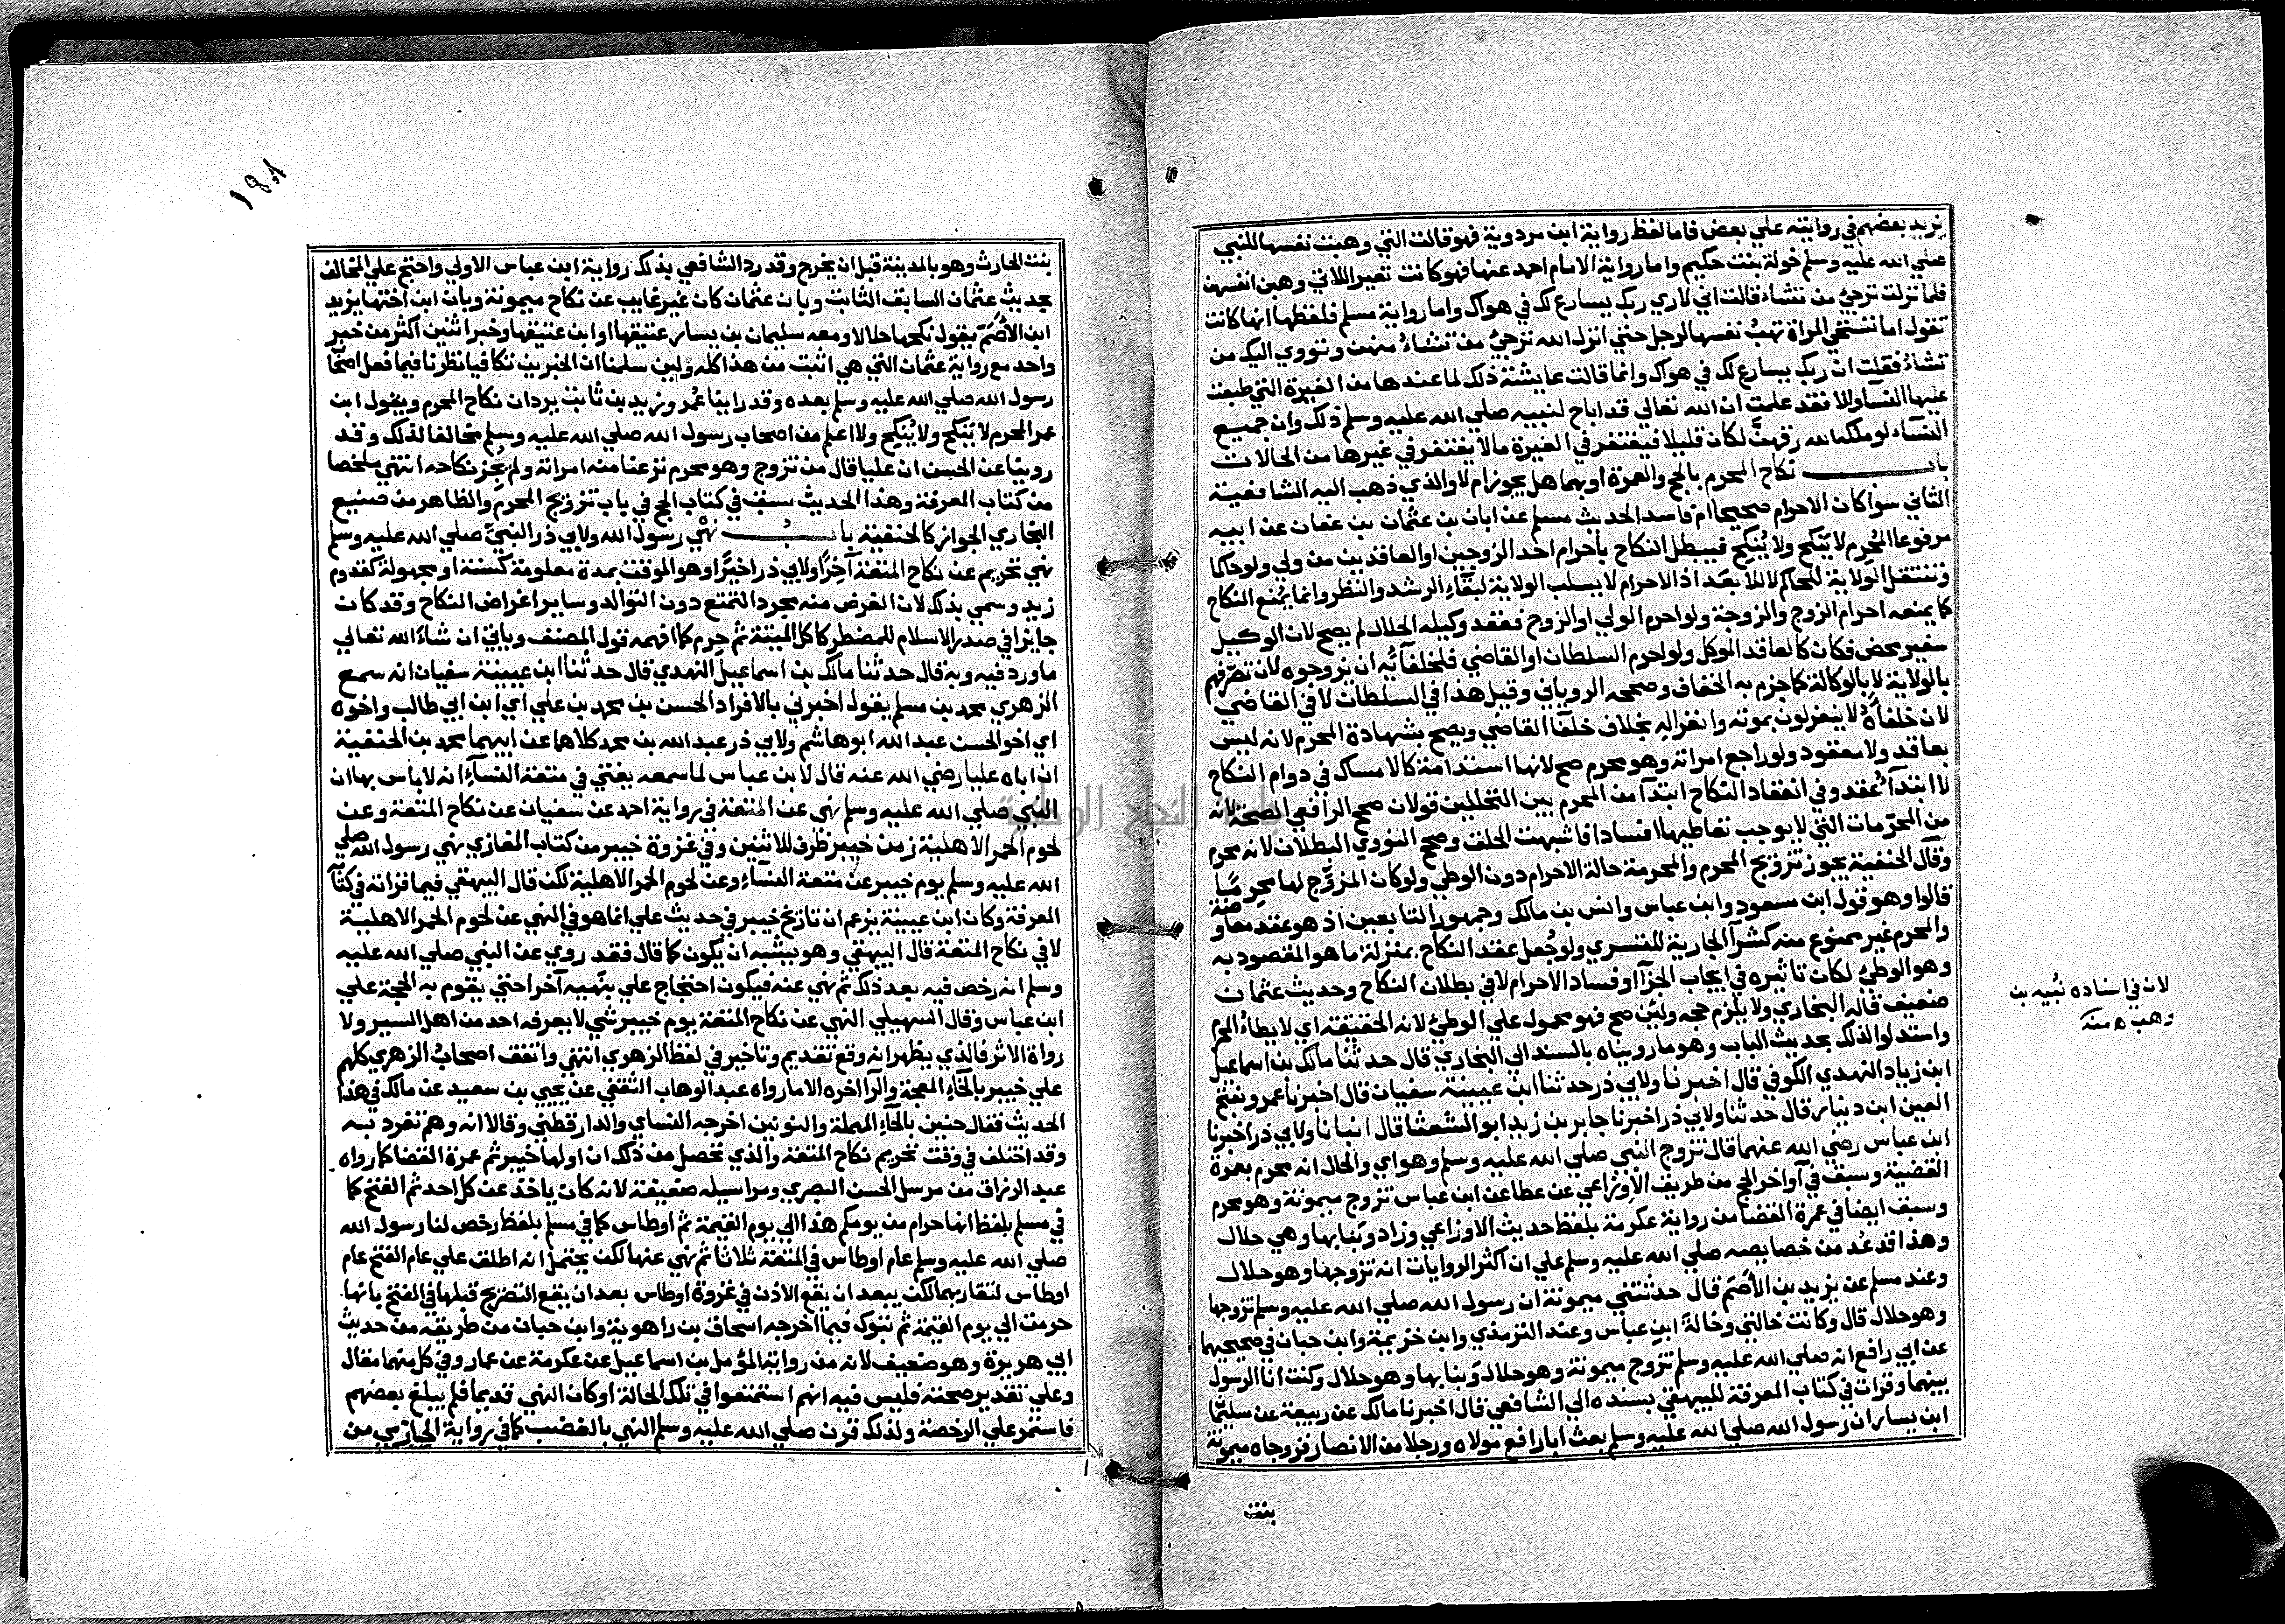 يزيد بعضهم في روايته علي بعض فاما لفظ رواية ابن مردوية فهو قالت التي وهبت نفسها للنبي
صلي الله عليه وسلم خولة بنت حكيم واما رواية الامام احمد عنها فهو كانت تعير اللاتي وهبن انفسهن
فلما نزلت ترجي من تشاء قالت اني لاري ربك يسارع لك في هواك واما رواية مسلم فلفظها انها كانت
تقول اما تستحي المراة تهب نفسها لرجل حتي انزل الله ترجي من تشاء منهن وتؤوي اليك من
تشاء فقلت ان ربك يسارع لك في هواك وانما قالت عايشة ذلك لما عندها من الغيرة التي طبعت
عليها النسآ والا فقد علمت ان الله تعالي قد اباح لنبيه صلي الله عليه وسلم ذلك وان جميع
النسآء لو ملكه الله رقهن لكان قليلا فيغتفر في الغيرة ما لا يغتفر في غيرها من الحالات
باب نكاح المحرم بالحج والعمرة او بهما هل يجوز ام لا والذي ذهب اليه الشافعية
الثاني سوا كان الاحرام صحيحا ام فاسدا لحديث مسلم عن ابان بن عثمان بن عفان عن ابيه
مرفوعا المحرم لا ينكح ولا ينكح فيبطل النكاح باحرام احد الزوجين او العاقدين من ولي ولو حاكما
وتنتقل الولاية للحاكم لا للابعد اذ الاحرام لا يسلب الولاية لبقآء الرشد والنظر وانما يمنع النكاح
كما يمنعه احرام الزوج والزوجة ولو احرم الولي او الزوج فعقد وكيله الحلال لم يصح لان الوكيل
سفير محض فكان كالعاقد الموكل ولو احرم السلطان او القاضي فلخلفآئه ان يزوجوه لان تصرفهم
بالولاية لا بالوكالة كما جزم به الخفاف وصححه الروياني وقيل هذا في السلطان لا في القاضي
لان خلفآه لا ينعزلون بموته وانعزاله بخلاف خلفا القاضي ويصح بشهادة المحرم لانه ليس
بعاقد ولا معقود ولو راجع امراته وهو محرم صح لانها استدامة كالامساك في دوام النكاح
لا ابتدآ عقد وفي انعقاد النكاح ابتدآ من المحرم بين التحللين قولان صحح الرافعي الصحة لانه
من المحرمات التي لا يوجب تعاطيها افسادا فاشبهت الحلق وصحح النووي البطلان لانه محرم
وقال الحنفية يجوز تزويج المحرم والمحرمة حالة الاحرام دون الوطي ولو كان المزوج لها محرما
قالوا وهو قول ابن مسعود وابن عباس وانس بن مالك وجمهور التابعين اذ هو عقد معاوضة
والمحرم غير ممنوع منه كشرآ الجارية للتسري ولو جعل عقد النكاح بمنزلة ما هو المقصود به
وهو الوطي لكان تاثيره في ايجاب الجزآ او فساد الاحرام لا في بطلان النكاح وحديث عثمان
ضعيف قاله البخاري ولا يلزم حجه ولئن صح فهو محمول علي الوطي لانه الحقيقة اي لا يطأ المحرم
واستدلوا لذلك بحديث الباب وهو ما رويناه بالسند الي البخاري قال حدثنا مالك بن اسماعيل
ابن زياد النهدي الكوفي قال اخبرنا ولابي ذر حدثنا ابن عيينة سفيان قال اخبرنا عمرو بفتح
العين ابن دينار قال حدثنا ولابي ذر اخبرنا جابر بن زيد ابو الشعثا قال انبانا ولابي ذر اخبرنا
ابن عباس رضي الله عنهما قال تزوج النبي صلي الله عليه وسلم وهو اي والحال انه محرم بعمرة
القضية وسبق في آواخر الحج من طريق الاوزاعي عن عطا عن ابن عباس تزوج ميمونة وهو محرم
وسبق ايضا في عمرة القضا من رواية عكرمة بلفظ حديث الاوزاعي وزاد وبنا بها وهي حلال
وهذا قد عد من خصايصه صلي الله عليه وسلم علي ان اكثر الروايات انه تزوجها وهو حلال
وعند مسلم عن يزيد بن الاصم قال حدثتني ميمونة ان رسول الله صلي الله عليه وسلم تزوجها
وهو حلال قال وكانت خالتي وخالة ابن عباس وعند الترمذي وابن خزيمة وابن حبان في صحيحيهما
عن ابي رافع انه صلي الله عليه وسلم تزوج ميمونة وهو حلال وبنا بها وهو حلال وكنت انا الرسول
بينهما وقرات في كتاب المعرفة للبيهقي بسنده الي الشافعي قال اخبرنا مالك عن ربيعة عن سليمان
ابن يسار ان رسول الله صلي الله عليه وسلم بعث ابا رافع مولاه ورجلا من الانصار فزوجاه ميمونة
بنت
لان في اسناده نبيه بن
وهب ه منه
١٩٨
بنت الحارث وهو بالمدينة قبل ان يخرج وقد رد الشافعي بذلك رواية ابن عباس الاولي واحتج علي المخالف
بحديث عثمان السابق الثابت وبان عثمان كان غير غايب عن نكاح ميمونة وبان ابن اختها يزيد
ابن الاصم يقول نكحها حلالا ومعه سليمان بن يسار عتيقها او ابن عتيقها وخبر اثنين اكثر من خبر
واحد مع رواية عثمان التي هي اثبت من هذا كله ولين سلمنا ان الخبرين تكافيا نظرنا فيما فعل اصحاب
رسول الله صلي الله عليه وسلم بعده وقد راينا عمر وزيد بن ثابت يردان نكاح المحرم ويقول ابن
عمر المحرم لا ينكح ولا ينكح ولا اعلم من اصحاب رسول الله صلي الله عليه وسلم مخالفا لذلك وقد
روينا عن الحسن ان عليا قال من تزوج وهو محرم نزعنا منه امراته ولم يجز نكاحه انتهي ملخصا
من كتاب المعرفة وهذا الحديث سبق في كتاب الحج في باب تزويج المحرم والظاهر من صنيع
البخاري الجواز كالحنفية باب نهي رسول الله ولابي ذر النبي صلي الله عليه وسلم
نهي تحريم عن نكاح المتعة آخرا ولابي ذر اخيرا وهو الموقت بمدة معلومة كسنة او مجهولة كقدوم
زيد وسمي بذلك لان الغرض منه مجرد التمتع دون التوالد وساير اغراض النكاح وقد كان
جايزا في صدر الاسلام للمضطر كاكل الميتة ثم حرم كما افهمه قول المصنف وياتي ان شاء الله تعالي
ما ورد فيه وبه قال حدثنا مالك بن اسماعيل النهدي قال حدثنا ابن عيينة سفيان انه سمع
الزهري محمد بن مسلم يقول اخبرني بالافراد الحسن بن محمد بن علي اي ابن ابي طالب واخوه
اي اخو الحسن عبد الله ابو هاشم ولابي ذر عبد الله بن محمد كلاهما عن ابيهما محمد بن الحنفية
ان اباه عليا رضي الله عنه قال لابن عباس لما سمعه يفتي في متعة النسآء انه لا باس بها ان
النبي صلي الله عليه وسلم نهي عن المتعة في رواية احمد عن سفيان عن نكاح المتعة وعن
لحوم الحمر الاهلية زمن خيبر ظرف للاثنين وفي غزوة خيبر من كتاب المغازي نهي رسول الله صلي
الله عليه وسلم يوم خيبر عن متعة النسآء وعن لحوم الحمر الاهلية لكن قال البيهقي فيما قراته في كتاب
المعرفة وكان ابن عيينة يزعم ان تاريخ خيبر في حديث علي انما هو في النهي عن لحوم الحمر الاهلية
لا في نكاح المتعة قال البيهقي وهو يشبه ان يكون كما قال فقد روي عن النبي صلي الله عليه
وسلم انه رخص فيه بعد ذلك ثم نهي عنه فيكون احتجاج علي بنهيه آخرا حتي يقوم به الحجة علي
ابن عباس وقال السهيلي النهي عن نكاح المتعة يوم خيبر شي لا يعرفه احد من اهل السير ولا
رواة الاثر فالذي يظهر انه وقع تقديم وتاخير في لفظ الزهري انتهي واتفق اصحاب الزهري كلهم
علي خيبر بالخآء المعجمة والرآ اخره الا ما رواه عبد الوهاب الثقفي عن يحيي بن سعيد عن مالك في هذا
الحديث فقال حنين بالحآء المهملة والنونين اخرجه النساي والدارقطني وقالا انه وهم تفرد به
وقد اختلف في وقت تحريم نكاح المتعة والذي تحصل من ذلك ان اولها خيبر ثم عمرة القضا كما رواه
عبد الرزاق من مرسل الحسن البصري ومراسيله ضعيفة لانه كان ياخذ عن كل احد ثم الفتح كما
في مسلم بلفظ انها حرام من يومكم هذا الي يوم القيمة ثم اوطاس كما في مسلم بلفظ رخص لنا رسول الله
صلي الله عليه وسلم عام اوطاس في المتعة ثلاثا ثم نهي عنها لكن يحتمل انه اطلق علي عام الفتح عام
اوطاس لتقاربهما لكن يبعد ان يقع الاذن في غزوة اوطاس بعد ان يقع التصريح قبلها في الفتح بانها
حرمت الي يوم القيمة ثم تبوك فيما اخرجه اسحاق بن راهوية وابن حبان من طريقه من حديث
ابي هريرة وهو ضعيف لانه من رواية المؤمل بن اسماعيل عن عكرمة عن عمار وفي كل منهما مقال
وعلي تقدير صحته فليس فيه انهم استمتعوا في تلك الحالة او كان النهي قديما فلم يبلغ بعضهم
فاستمر علي الرخصة ولذلك قرن صلي الله عليه وسلم النهي بالغضب كما في رواية الحازمي من